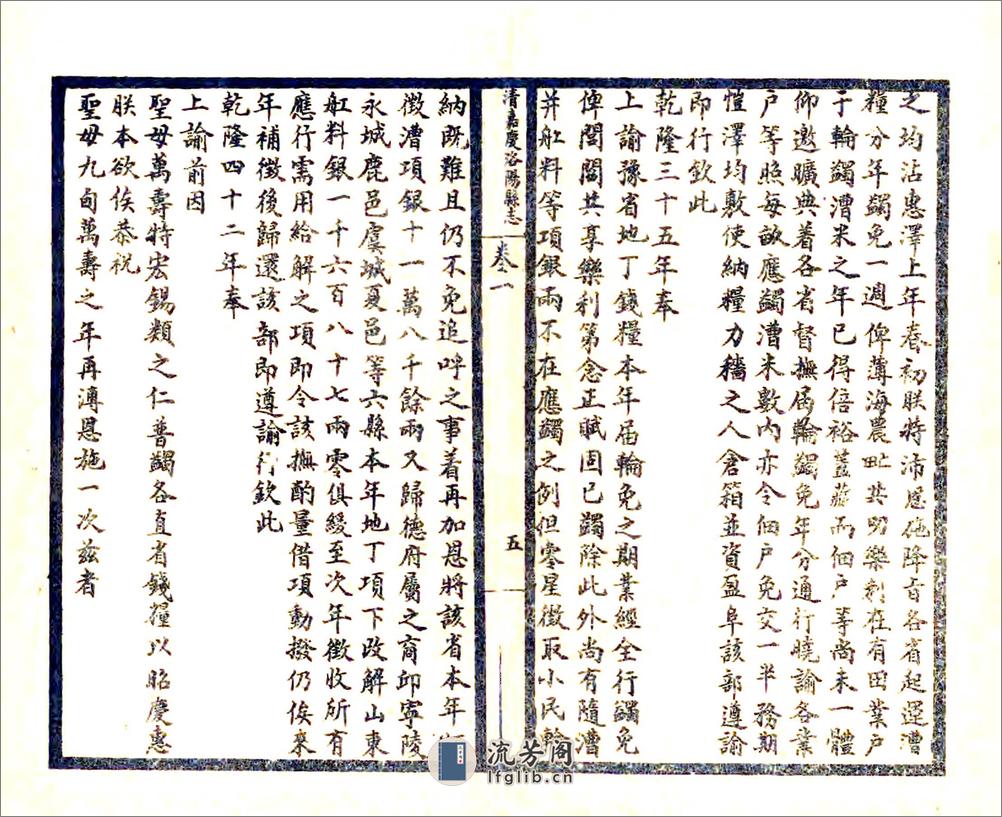 之均沾惠澤上年春初朕特沛恩施降旨各省起運漕
糧分年蠲免一週俾薄海農甿共叨樂利在有田業戶
于輪蠲漕米之年已得倍裕蓋藏而佃戶等尚未一體
仰邀曠典着各省督撫屆輪蠲免年分通行曉諭各業
戶等照每畝應蠲漕米數內亦令佃戶免交一半務期
愷澤均敷使納糧力穡之人倉箱並資盈阜該部遵諭
即行欽此
乾隆三十五年奉
上諭豫省地丁錢糧本年屆輪免之期業經全行蠲免
俾閭閻共享樂利第念正賦固已蠲除此外尚有隨漕
并舡料等項銀兩不在應蠲之例但零星徵取小民輸
清嘉慶洛陽縣志
卷一
五
納既難且仍不免追呼之事着再加恩將該省本年
徵漕項銀十一萬八千餘兩又歸德府屬之商邱寧陵
永城鹿邑虞城夏邑等六縣本年地丁項下改解山東
舡料銀一千六百八十七兩零俱緩至次年徵收所有
應行需用給解之項即令該撫酌量借項動撥仍俟來
年補徵後歸還該部即遵諭行欽此
乾隆四十二年奉
上諭前因
聖母萬壽特宏錫類之仁普蠲各直省錢糧以昭慶惠
朕本欲俟恭祝
聖母九旬萬壽之年再溥恩施一次茲者
流芳阁
lfglib.cn